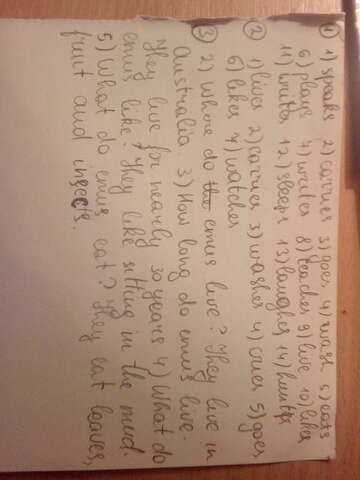 ① 1) speaks 2) carries 3) goes 4) wash 5) eats
6) plays 7) writes 8) teaches 9) live 10) likes
11) writes 12) sleeps 13) laughs 14) hunts
② 1) lives 2) carries 3) washes 4) cries 5) goes
6) likes 7) watches
③ 2) Where do the emus live? They live in
Australia. 3) How long do emus live.
They live for nearly 30 years 4) What do
emus like? They like sitting in the mud.
5) What do emus eat? They eat leaves,
fruit and insects.